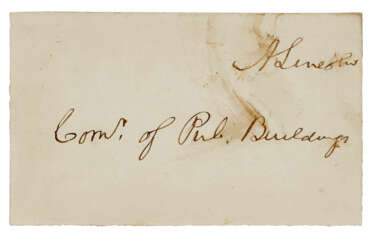 A. Lincoln
Comr. of Pub. Buildings